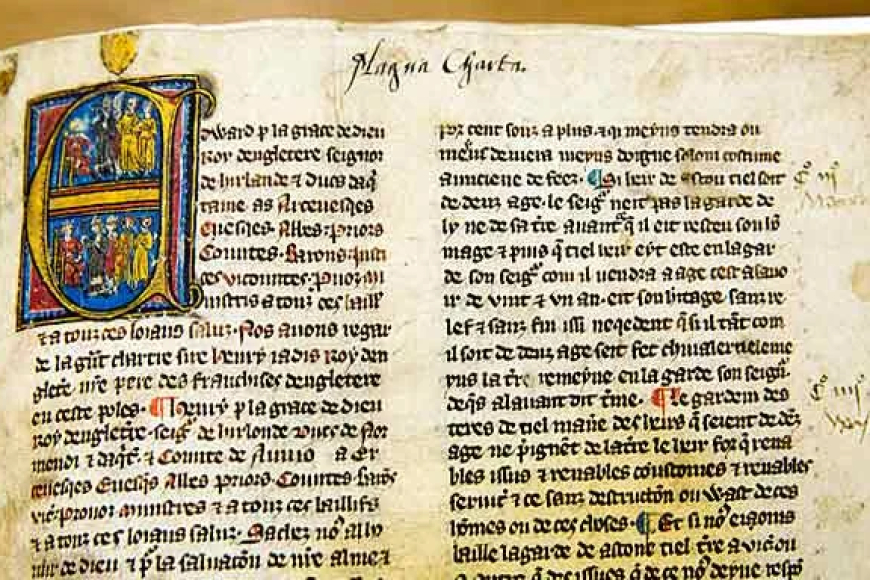 Magna Charta.
Edward p la grace de dieu
Roy dengletere seignor
de hirlande & Ducs daq̄
taine as Arceuesqes
Euesqes. Abbes. Priors
Countes. Barons. Justi
ces. vicountes. Prouoz. Mi
nistris a touz ces baill
& a touz ces loiaus saluz. Nos auons regar
de la gnt chartre sire Henry iadis Roy den
gletere nre pere des franchises dengletere
en ceste poles. ¶ Henry p la grace de dieu
Roy dengletre. seigr de hirlonde. Ducs de Nor
mendi & daqt. & Counte de a Er
ceuesqes Euesqs Abbes Priors. Countes. barōs
vic. Prouoz ministres & touz ces baillifs
& a touz ces loiaus saluz. Sachez no9
de dieu & p la saluacōn de nre alme &
porr cent souz a plus. & qi meyns tendra ou
meins deuiera meyns doigne solom custume
aunciene de feez. ¶ Si heir de tiel soit
de denz age. le seigr neit pas la garde de
ly ne de sa tre auant q il eit resceu son ho
mage & puis q tiel heir eyt este en la gar
de son seigr com il uendra a age cest asauo
ir de vint & vn an. eit son hitage sanz re
lef & sanz fin issi neqedent q si il tāt com
il soit de denz age seit fet chiualer tieleme
yns la tre remeyne en la garde son seigur
deqs al auant dit tme. ¶ Le gardein des
teres de tiel mane des heirs q seient de dez
age ne pignet de la tre le heir forq rena
bles issus & renables coustomes & renables
seruic & ce sanz destructōn ou wast de ces
homes ou de ces choses. ¶ Et si no9 eigoms
baille la garde de tiel tre a vicou
Co iijo
Co iiijo